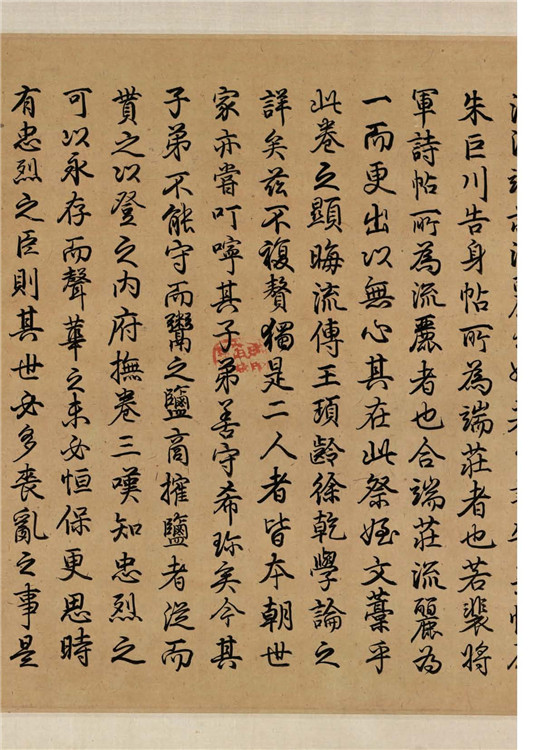 朱巨川告身帖所為端莊者也若裴將
軍詩帖所為流麗者也合端莊流麗為
一而更出以無心其在此祭姪文藁乎
此卷之顯晦流傳王頊齡徐乾學論之
詳矣茲不複贅獨是二人者皆本朝世
家亦嘗叮嚀其子弟善守希珎矣今其
子弟不能守而鬻之鹽商搉鹽者從而
貰之以登之內府撫卷三嘆知忠烈之
可以永存而聲華之未必恒保更思時
有忠烈之臣則其世必多喪亂之事是